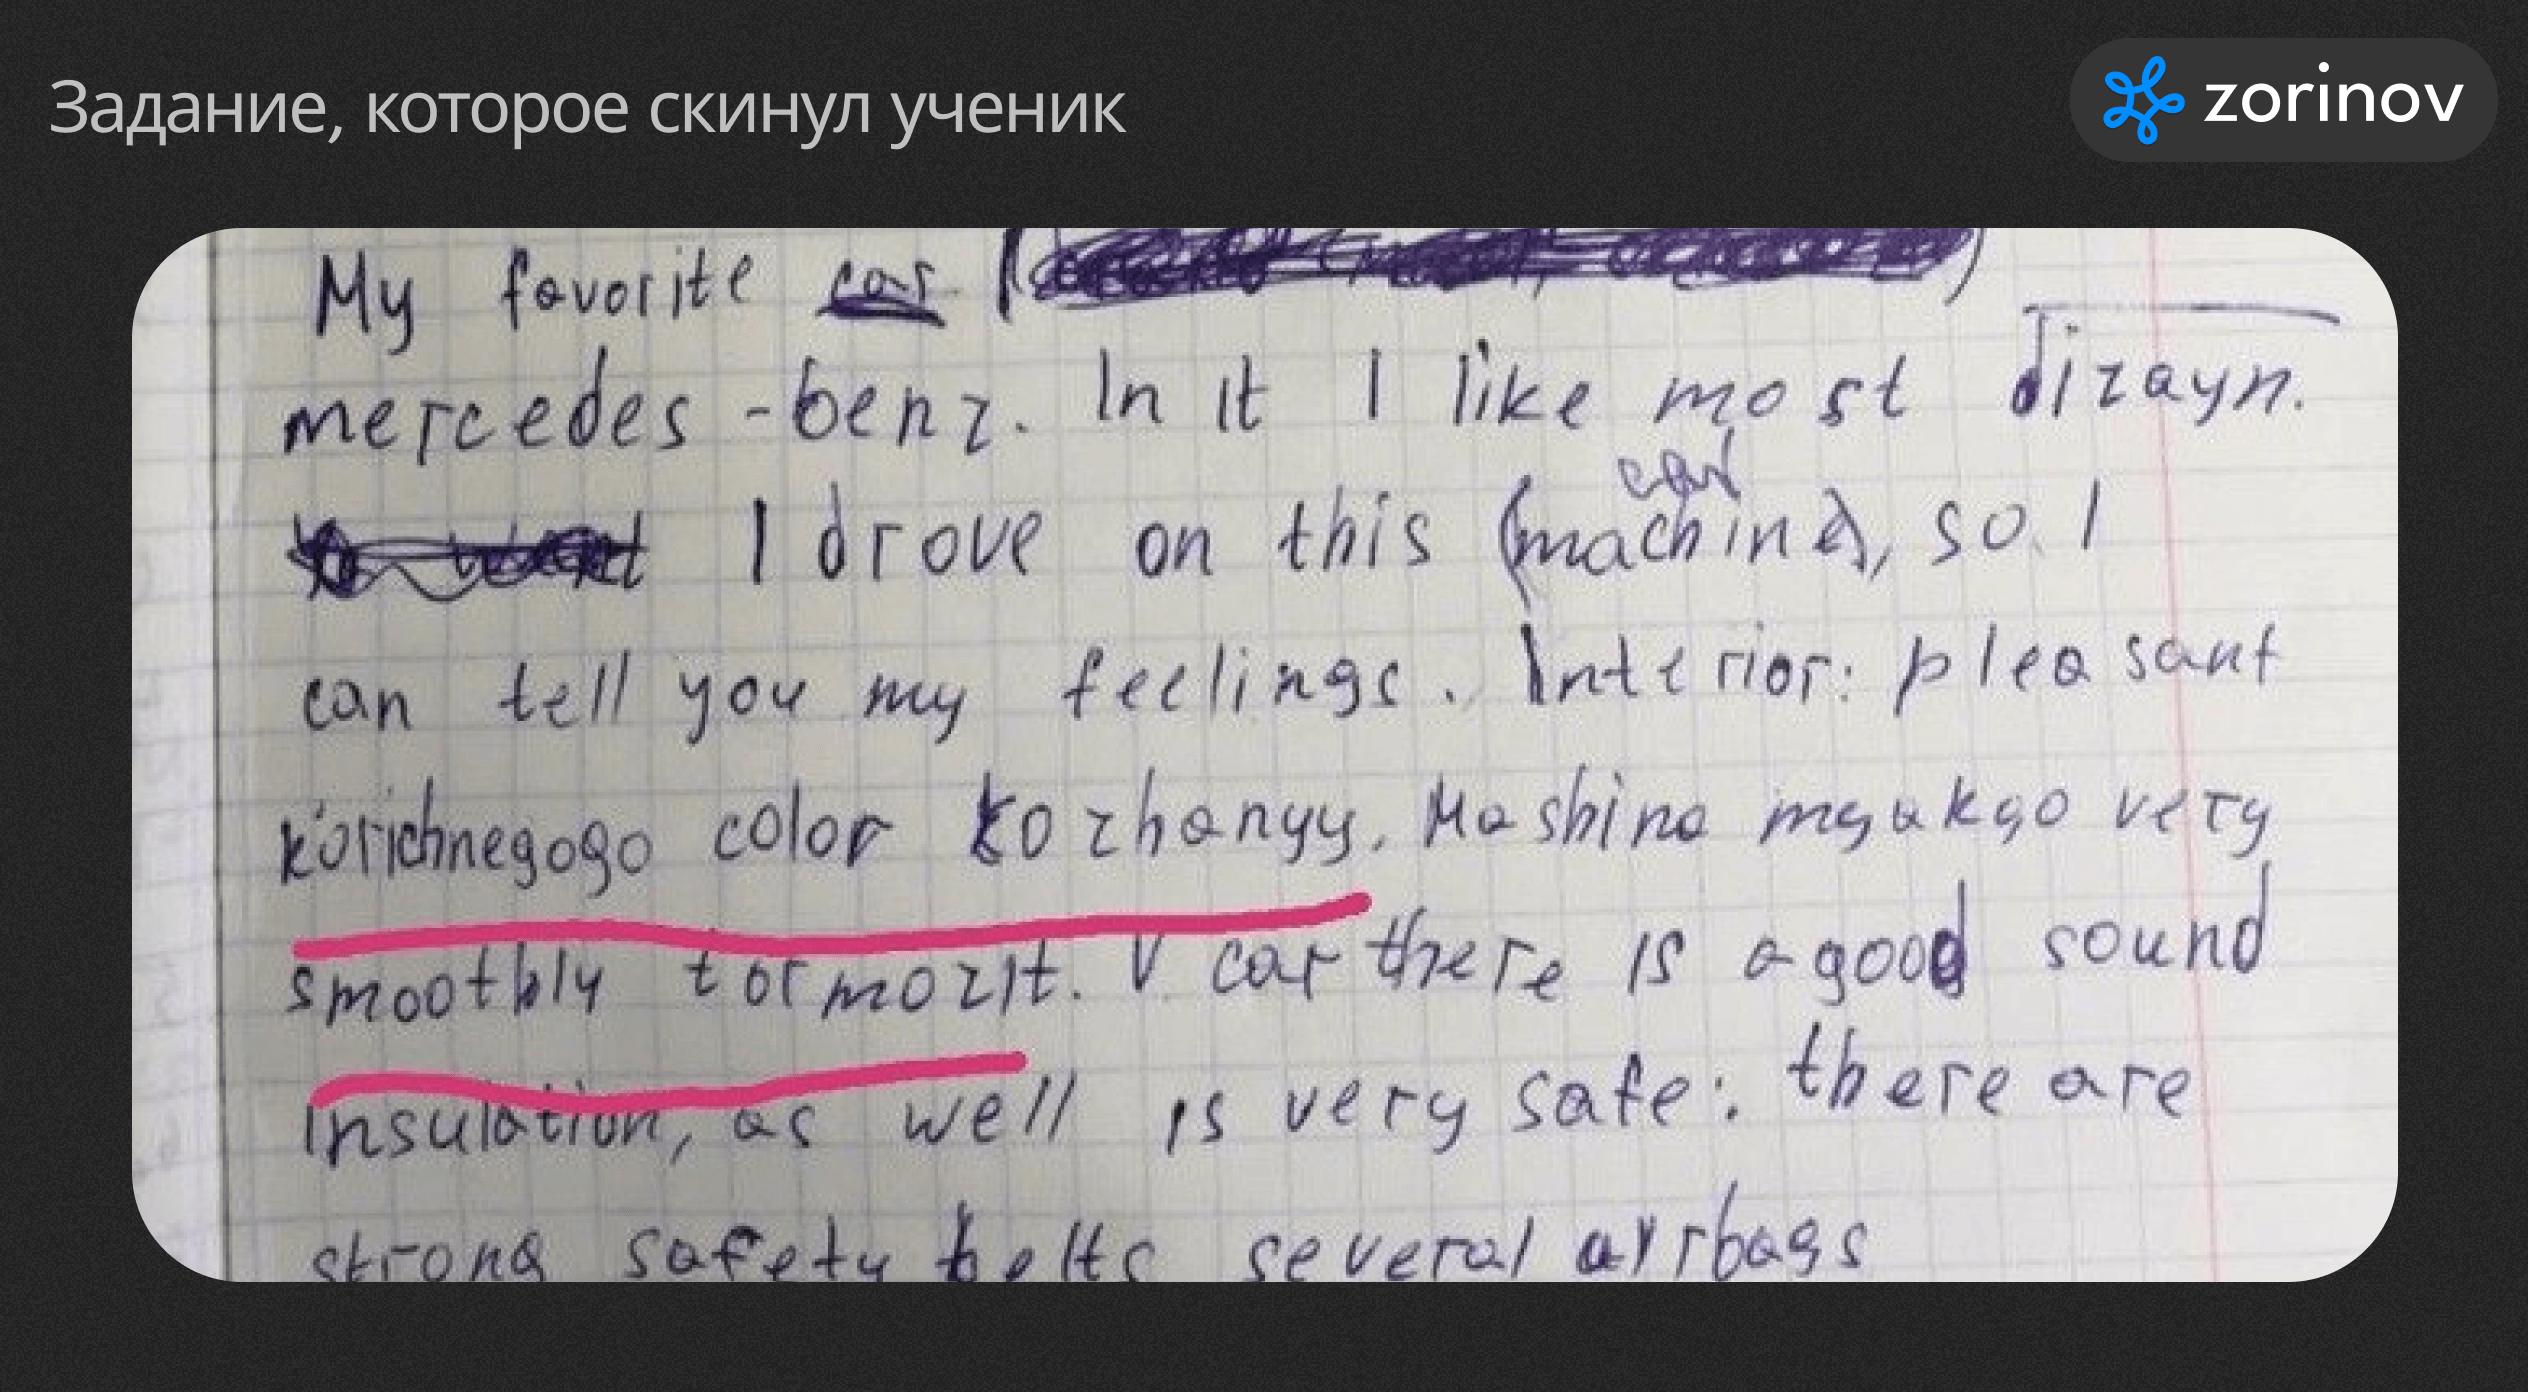 Задание, которое скинул ученик
zorinov
My favorite car
mercedes - benz. In it I like most dizayn.
car
I drove on this (machine), so I
can tell you my feelings. Interior: pleasant
korichnegogo color kozhanyy. Mashina myakgo very
smoothly tormozit. V car there is a good sound
insulation, as well is very safe: there are
strong safety belts several airbags